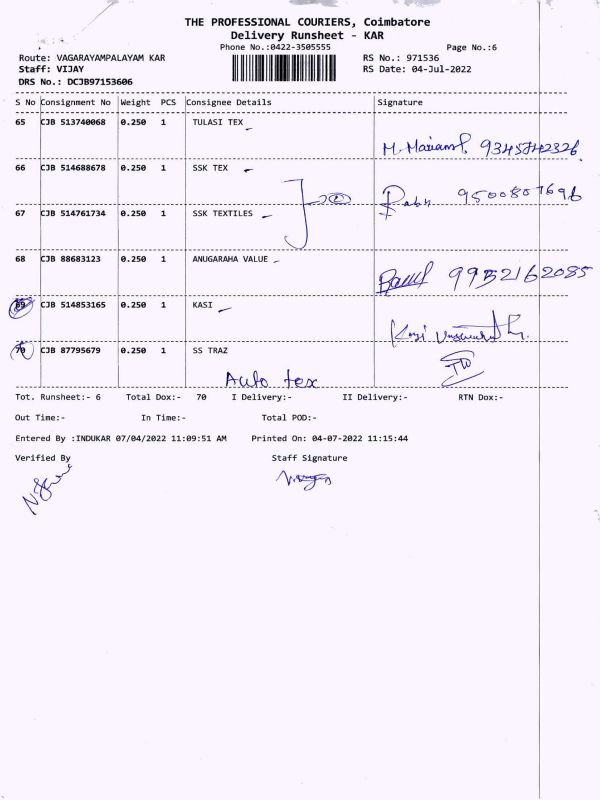 THE PROFESSIONAL COURIERS, Coimbatore
Delivery Runsheet - KAR
Phone No.:0422-3505555 Page No.:6
Route: VAGARAYAMPALAYAM KAR RS No.: 971536
Staff: VIJAY RS Date: 04-Jul-2022
DRS No.: DCJB97153606
S No Consignment No Weight PCS Consignee Details Signature
65 CJB 513740068 0.250 1 TULASI TEX
66 CJB 514688678 0.250 1 SSK TEX
9500807696
67 CJB 514761734 0.250 1 SSK TEXTILES
68 CJB 88683123 0.250 1 ANUGARAHA VALUE
9952162085
69 CJB 514853165 0.250 1 KASI
70 CJB 87795679 0.250 1 SS TRAZ
Auto tex
Tot. Runsheet:- 6 Total Dox:- 70 I Delivery:- II Delivery:- RTN Dox:-
Out Time:- In Time:- Total POD:-
Entered By :INDUKAR 07/04/2022 11:09:51 AM Printed On: 04-07-2022 11:15:44
Verified By Staff Signature